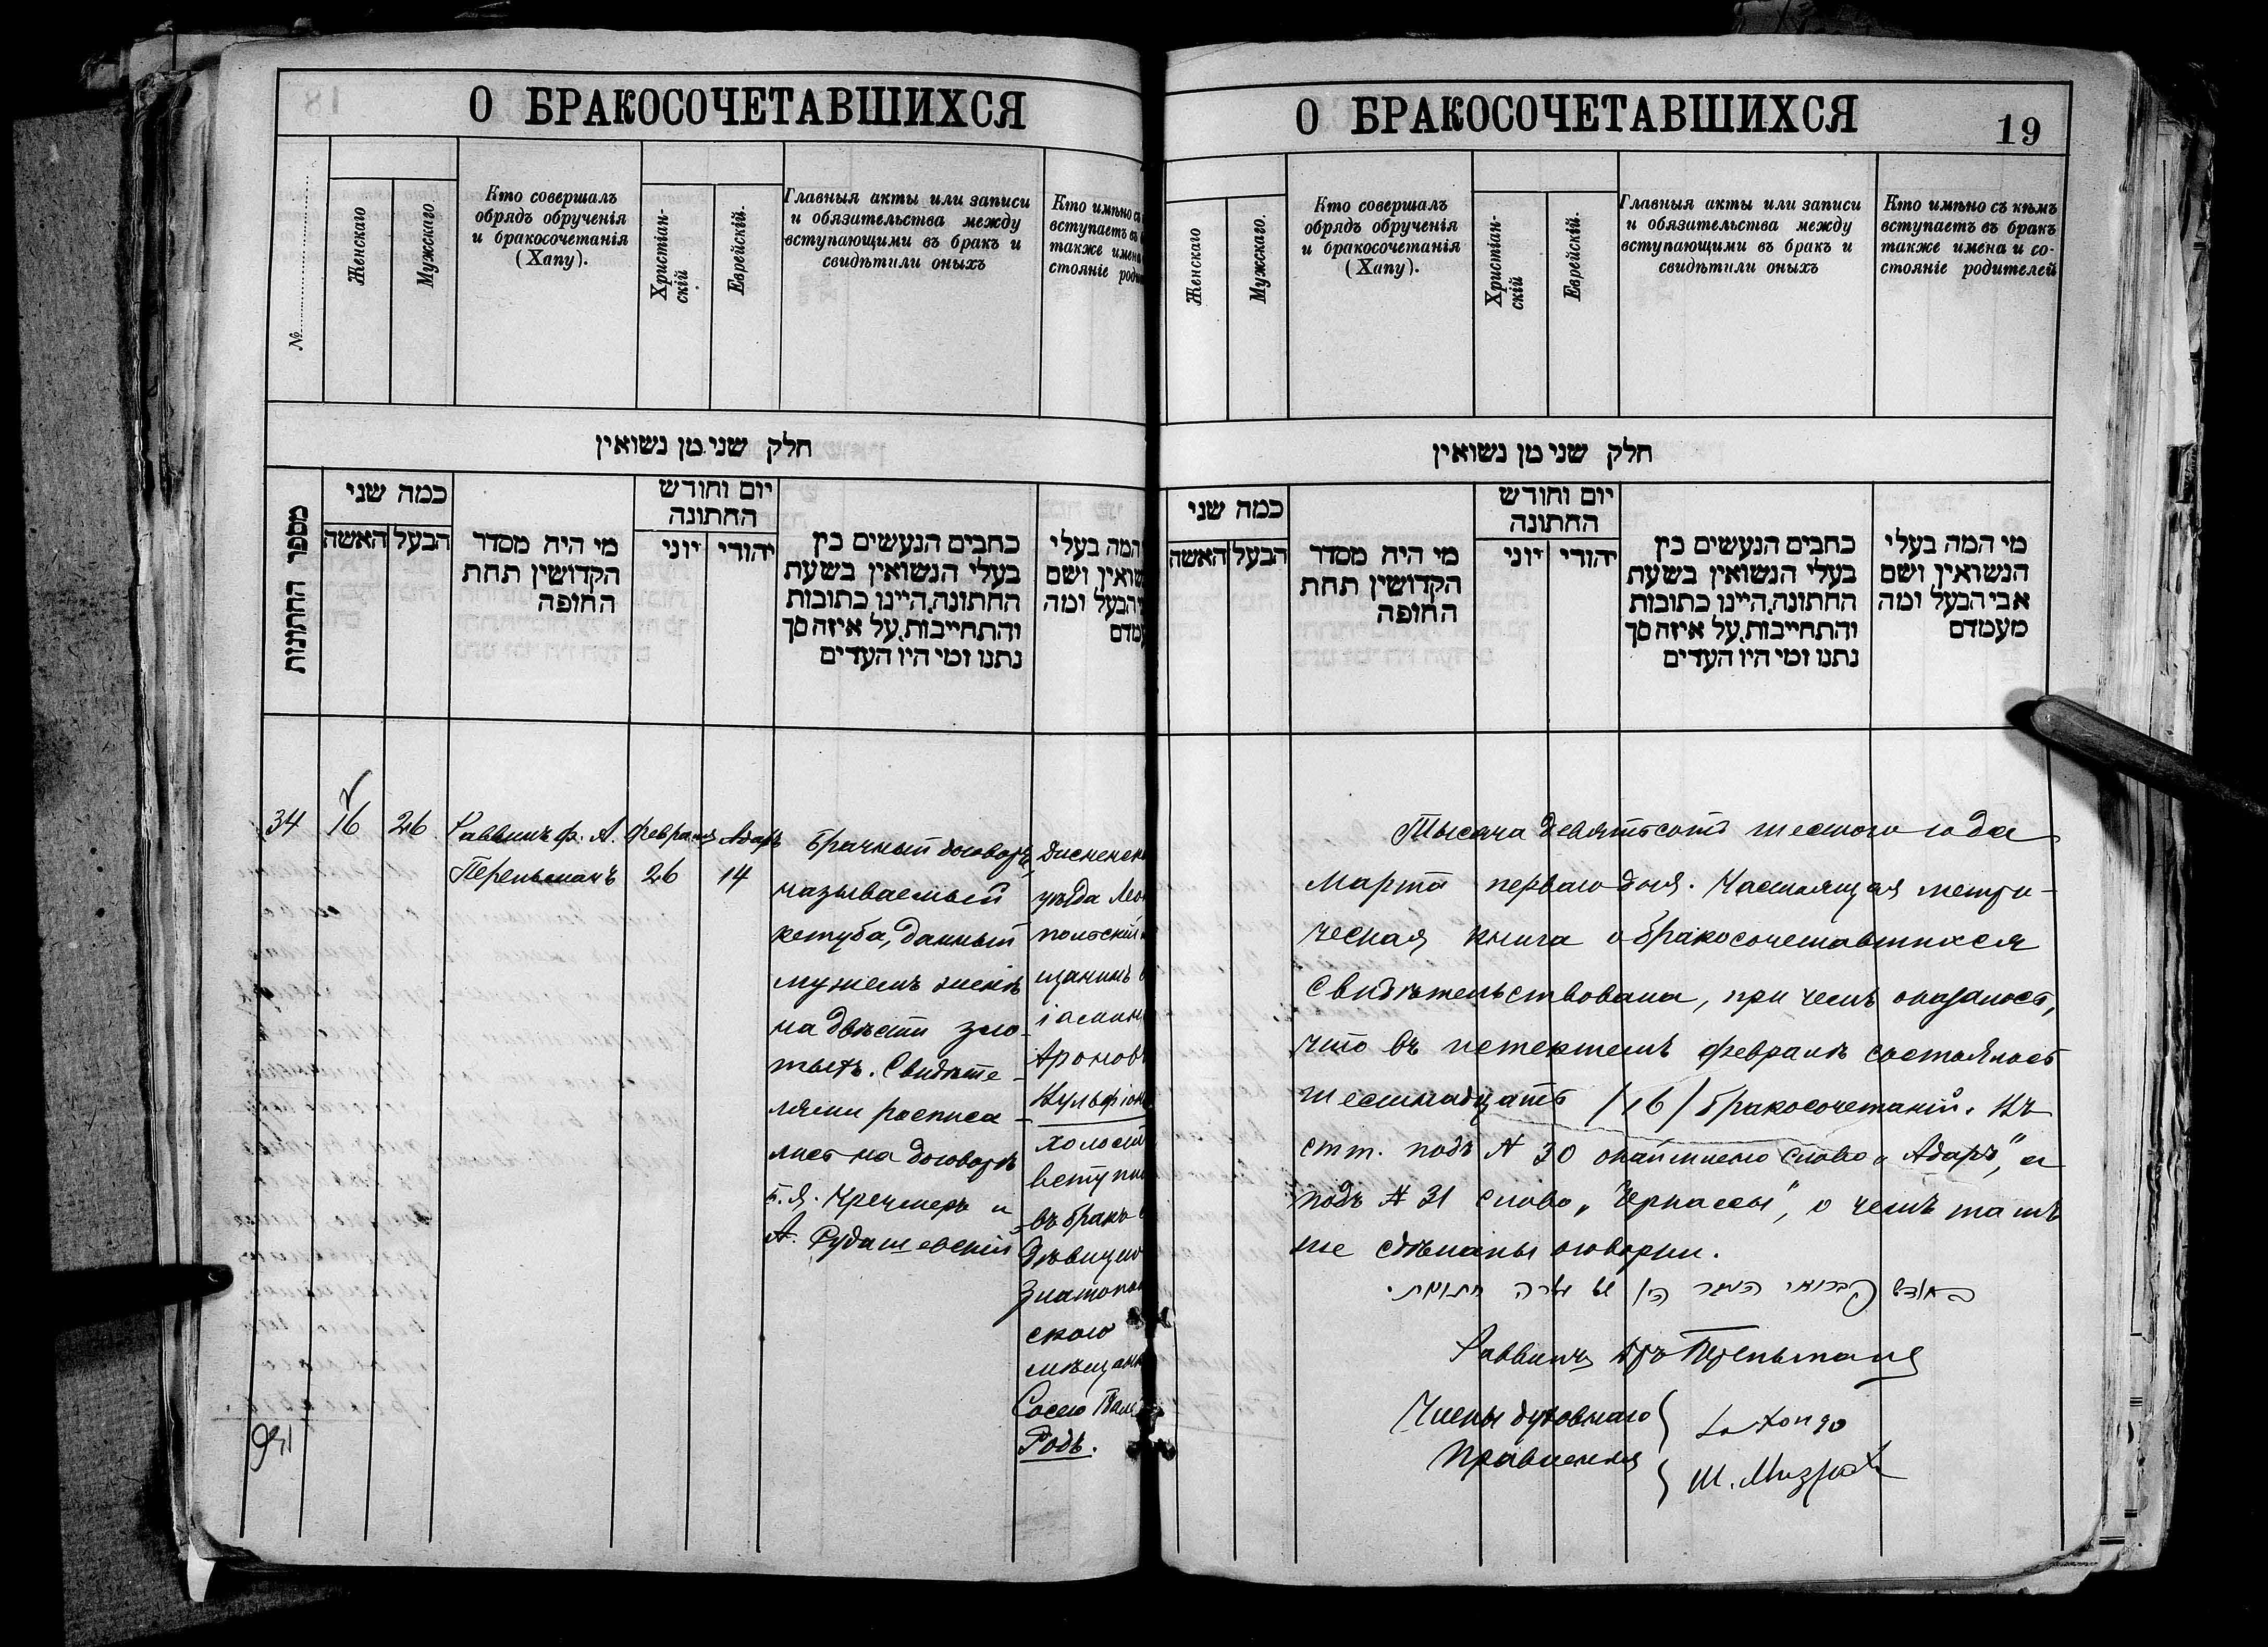 О БРАКОСОЧЕТАВШИХСЯ
№
Женскаго
Мужскаго
Кто совершалъ
обрядъ обрученія
и бракосочетанія
(Хапу).
Христіан-
скій
Еврейскій.
Главныя акты или записи
и обязательства между
вступающими въ бракъ и
свидѣтили оныхъ
Кто имѣно съ
вступаетъ въ
также имена
стояніе роди
חלק שני מן נשואין
מספר החתונות
כמה שני
האשה
הבעל
מי היה מסדר
הקדושין תחת
החופה
יום וחודש
החתונה
יוני
יהודי
כתבים הנעשים בין
בעלי הנשואין בשעת
החתונה, היינו כתובות
והתחייבות, על איזה סך
נתנו ומי היו העדים
המה בעלי
שואין ושם
הבעל ומה
עמדם
34
16
26
Раввинъ Ф. А.
Перельманъ
Февраля
26
Адаръ
14
Брачный договоръ,
называемый
кетуба, данный
мужемъ женѣ
на двѣсти зло-
тыхъ. Свидѣте-
лями росписа-
лись на договорѣ
А. Рудашевскій
Дисненск
уѣзда Лео
польскій
щанинъ
Аронов
Вульфсон
холост
вступи
въ бракъ
дѣвицею
Златополь
скою
мѣщанк
Сосею
Родъ.
О БРАКОСОЧЕТАВШИХСЯ
19
Женскаго
Мужскаго.
Кто совершалъ
обрядъ обрученія
и бракосочетанія
(Хапу).
Христіан-
скій
Еврейскій.
Главныя акты или записи
и обязательства между
вступающими въ бракъ и
свидѣтили оныхъ
Кто имѣно съ кѣмъ
вступаетъ въ бракъ
также имена и со-
стояніе родителей
חלק שני מן נשואין
כמה שני
האשה
הבעל
מי היה מסדר
הקדושין תחת
החופה
יום וחודש
החתונה
יוני
יהודי
כתבים הנעשים בין
בעלי הנשואין בשעת
החתונה, היינו כתובות
והתחייבות, על איזה סך
נתנו ומי היו העדים
מי המה בעלי
הנשואין ושם
אבי הבעל ומה
מעמדם
Тысяча девятьсотъ шестого года
Марта перваго дня. Настоящая метри-
ческая книга о бракосочетавшихся
свидѣтельствована, при чемъ оказалось,
что въ истекшемъ Февралѣ состоялось
шестнадцать /16/ бракосочетаній. Въ
ст. подъ № 30 окаймлено слово „Адаръ", а
подъ № 31 слово „Черкассы", о чемъ тамъ
же сдѣланы оговорки.
Раввинъ Перельманъ
Члены духовнаго
Правленія
Ш. Мизрахи